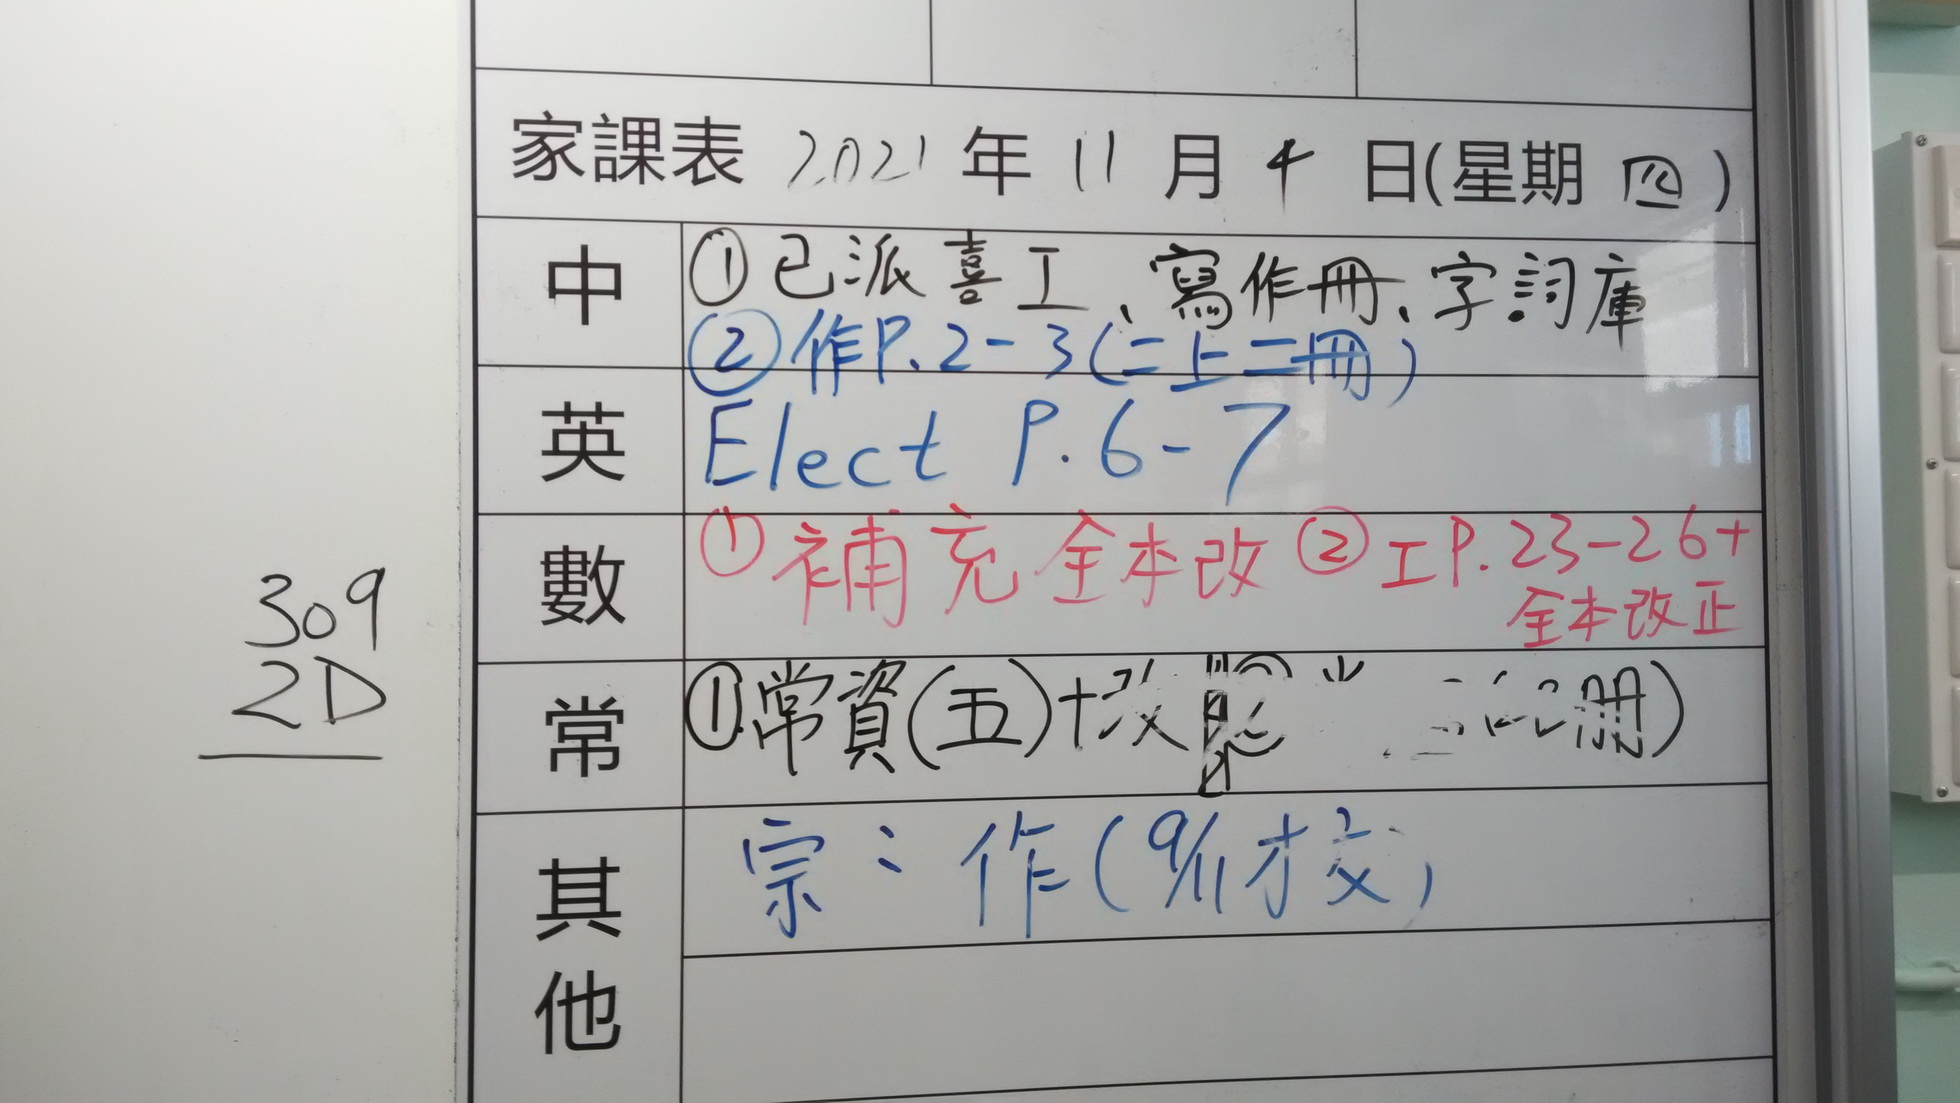 家課表 2021 年 11 月 4 日(星期 四)
中
①已派喜工、寫作冊、字詞庫
②作P.2-3(二上二冊)
英
Elect P.6-7
數
①補充全本改 ②工P.23-26+
全本改正
常
①常資(五)+改
冊)
其他
宗：作(9/11才交)
309
2D